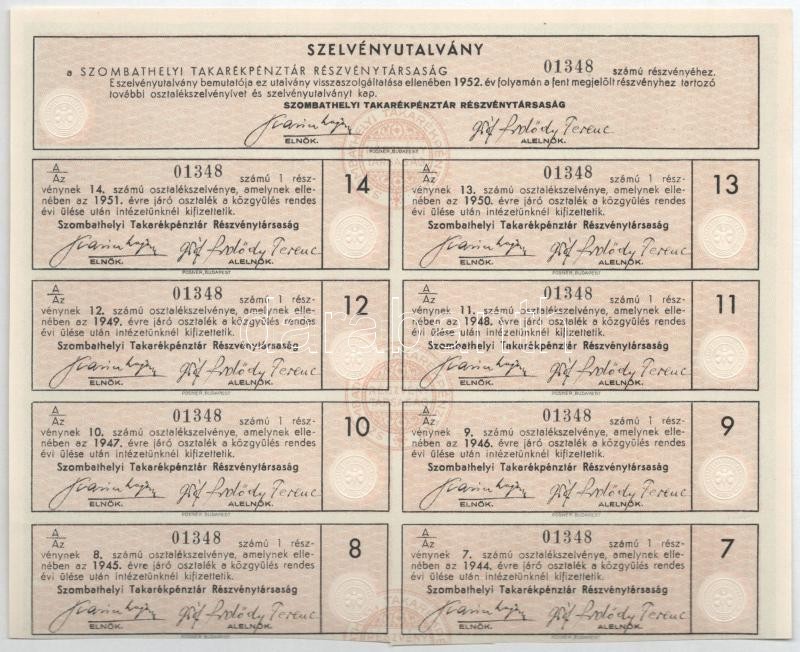 SZELVÉNYUTALVÁNY
a SZOMBATHELYI TAKARÉKPÉNZTÁR RÉSZVÉNYTÁRSASÁG 01348 számú részvényéhez.
E szelvényutalvány bemutatója ez utalvány visszaszolgáltatása ellenében 1952. év folyamán a fent megjelölt részvényhez tartozó
további osztalékszelvényívet és szelvényutalványt kap.
SZOMBATHELYI TAKARÉKPÉNZTÁR RÉSZVÉNYTÁRSASÁG
gróf Erdődy Ferenc
ELNÖK. ALELNÖK.
POSNER, BUDAPEST
A/Az 01348 számú 1 rész-
vénynek 14. számú osztalékszelvénye, amelynek elle-
nében az 1951. évre járó osztalék a közgyűlés rendes
évi ülése után intézetünknél kifizettetik.
Szombathelyi Takarékpénztár Részvénytársaság
gróf Erdődy Ferenc
ELNÖK. ALELNÖK.
14
POSNER, BUDAPEST
A/Az 01348 számú 1 rész-
vénynek 13. számú osztalékszelvénye, amelynek elle-
nében az 1950. évre járó osztalék a közgyűlés rendes
évi ülése után intézetünknél kifizettetik.
Szombathelyi Takarékpénztár Részvénytársaság
gróf Erdődy Ferenc
ELNÖK. ALELNÖK.
13
POSNER, BUDAPEST
A/Az 01348 számú 1 rész-
vénynek 12. számú osztalékszelvénye, amelynek elle-
nében az 1949. évre járó osztalék a közgyűlés rendes
évi ülése után intézetünknél kifizettetik.
Szombathelyi Takarékpénztár Részvénytársaság
gróf Erdődy Ferenc
ELNÖK. ALELNÖK.
12
POSNER, BUDAPEST
A/Az 01348 számú 1 rész-
vénynek 11. számú osztalékszelvénye, amelynek elle-
nében az 1948. évre járó osztalék a közgyűlés rendes
évi ülése után intézetünknél kifizettetik.
Szombathelyi Takarékpénztár Részvénytársaság
gróf Erdődy Ferenc
ELNÖK. ALELNÖK.
11
POSNER, BUDAPEST
A/Az 01348 számú 1 rész-
vénynek 10. számú osztalékszelvénye, amelynek elle-
nében az 1947. évre járó osztalék a közgyűlés rendes
évi ülése után intézetünknél kifizettetik.
Szombathelyi Takarékpénztár Részvénytársaság
gróf Erdődy Ferenc
ELNÖK. ALELNÖK.
10
POSNER, BUDAPEST
A/Az 01348 számú 1 rész-
vénynek 9. számú osztalékszelvénye, amelynek elle-
nében az 1946. évre járó osztalék a közgyűlés rendes
évi ülése után intézetünknél kifizettetik.
Szombathelyi Takarékpénztár Részvénytársaság
gróf Erdődy Ferenc
ELNÖK. ALELNÖK.
9
POSNER, BUDAPEST
A/Az 01348 számú 1 rész-
vénynek 8. számú osztalékszelvénye, amelynek elle-
nében az 1945. évre járó osztalék a közgyűlés rendes
évi ülése után intézetünknél kifizettetik.
Szombathelyi Takarékpénztár Részvénytársaság
gróf Erdődy Ferenc
ELNÖK. ALELNÖK.
8
A/Az 01348 számú 1 rész-
vénynek 7. számú osztalékszelvénye, amelynek elle-
nében az 1944. évre járó osztalék a közgyűlés rendes
évi ülése után intézetünknél kifizettetik.
Szombathelyi Takarékpénztár Részvénytársaság
gróf Erdődy Ferenc
ELNÖK. ALELNÖK.
7